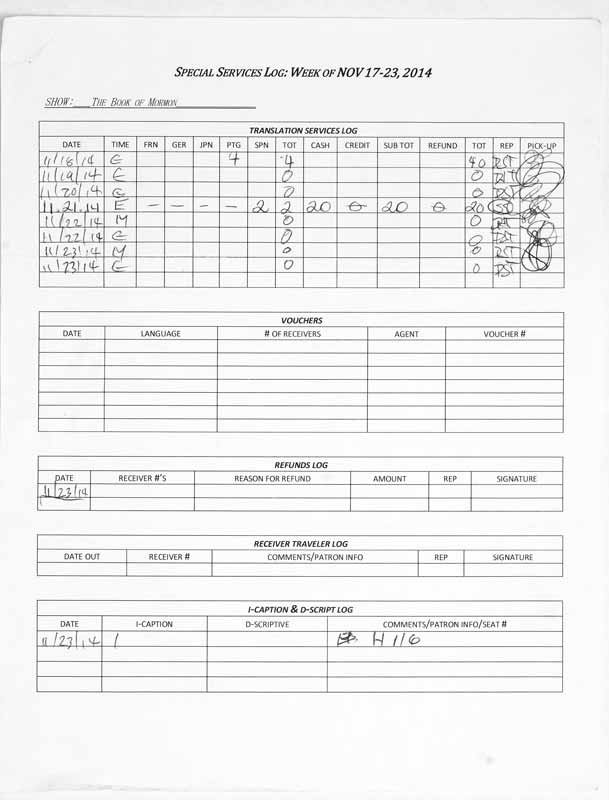 SPECIAL SERVICES LOG: WEEK OF NOV 17-23, 2014
SHOW: THE BOOK OF MORMON
TRANSLATION SERVICES LOG
DATE TIME FRN GER JPN PTG SPN TOT CASH CREDIT SUB TOT REFUND TOT REP PICK-UP
11/18/14 E 4 4 40 DST
11/19/14 E 0 0 DST
11/20/14 E 0 0 DST
11.21.14 E – – – – 2 2 20 0 20 0 20
11/22/14 M 0 0
11/22/14 E 0 0 DST
11/23/14 M 0 0 DST
11/23/14 E 0 0 DST
VOUCHERS
DATE LANGUAGE # OF RECEIVERS AGENT VOUCHER #
REFUNDS LOG
DATE RECEIVER #'S REASON FOR REFUND AMOUNT REP SIGNATURE
11/23/14
RECEIVER TRAVELER LOG
DATE OUT RECEIVER # COMMENTS/PATRON INFO REP SIGNATURE
I-CAPTION & D-SCRIPT LOG
DATE I-CAPTION D-SCRIPTIVE COMMENTS/PATRON INFO/SEAT #
11/23/14 1 H 116